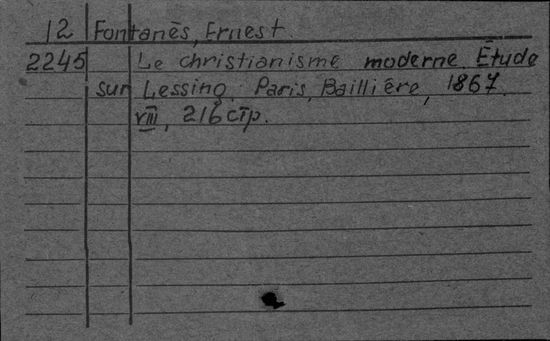 12 Fontanès, Ernest.
2245 Le christianisme moderne. Étude
sur Lessing. Paris, Baillière, 1867.
VIII, 216 стр.